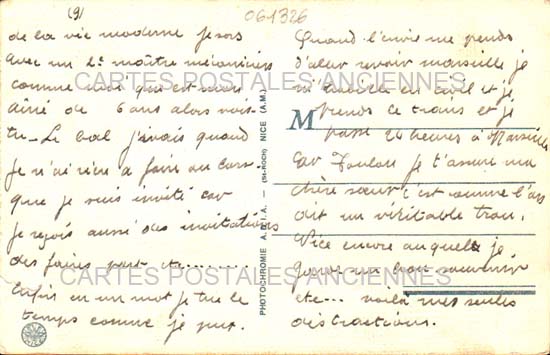 (9)
061326
de la vie moderne je sors
avec un 2e maître mécanicien
comme moi qui est mon
ainé de 6 ans alors vois
tu - Le bal j'y vais quand
je n'ai rien a faire au
que je suis invité car
je reçois aussi des invitations
des faires part etc........
Enfin en un mot je tue le
temps comme je peux.
PHOTOCHROMIE A. D. I. A. — (St-ROCH) NICE (A.M.)
Quand l'envie me prends
d'aller revoir marseille je
m'habille en civil et je
M
prends le train et je
passe 24 heures à Marseille
Car Toulon je t'assure ma
chère sœur c'est comme l'on
dit un véritable trou.
Nice encore auquel je
garde un bon souvenir
etc... voilà mes seules
distractions.
CARTES POSTALES ANCIENNES
CARTES POSTALES ANCIENNES